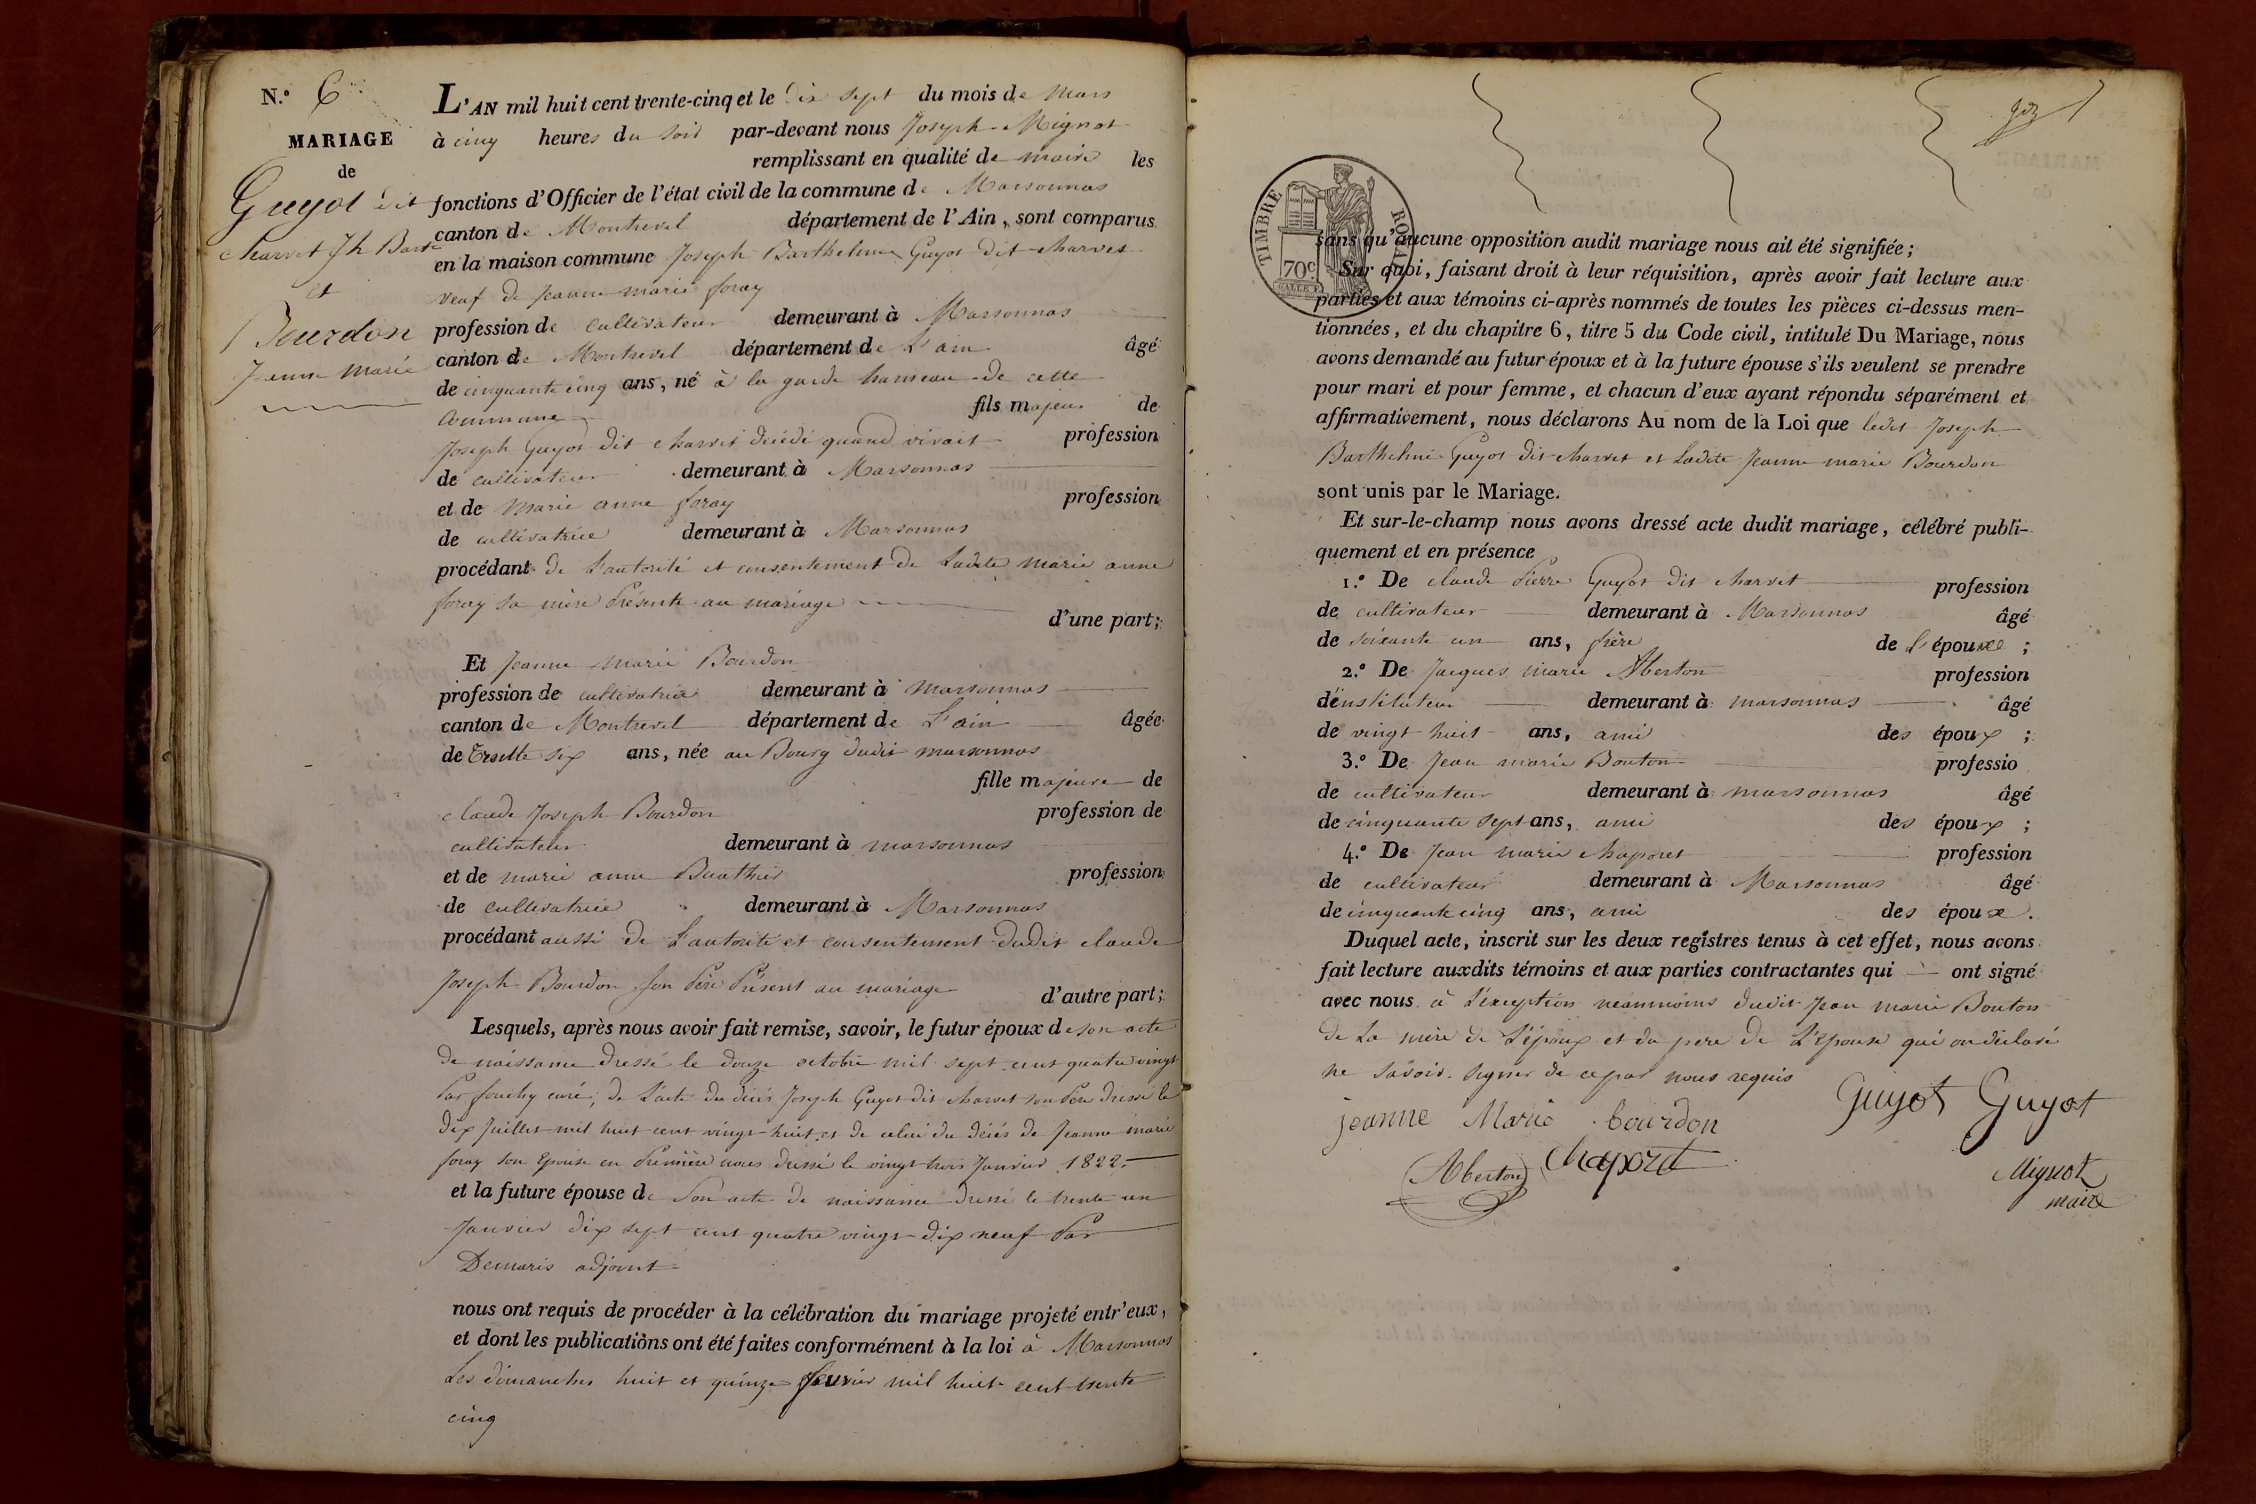 N.º 6
MARIAGE
de
Guyot dit
charvet Jh Barth
et
Bourdon
Jeanne Marie
L'AN mil huit cent trente-cinq et le dix sept du mois de Mars
à cinq heures du soir par-devant nous Joseph Mignot
remplissant en qualité de maire les
fonctions d'Officier de l'état civil de la commune de Marsonnas
canton de Montrevel département de l'Ain, sont comparus
en la maison commune Joseph Barthelemi Guyot dit charvet
veuf de Jeanne marie foray
profession de cultivateur demeurant à Marsonnas
canton de Montrevel département de L'ain âgé
de cinquante cinq ans, né à la garde hameau de cette
commune fils majeur de
Joseph Guyot dit charvet décédé quand vivait profession
de cultivateur demeurant à Marsonnas
et de Marie anne foray profession
de cultivatrice demeurant à Marsonnas
procédant de L'autorité et consentement de Ladite marie anne
foray sa mère Présente au mariage
d'une part;
Et Jeanne marie Bourdon
profession de cultivatrice demeurant à marsonnas
canton de Montrevel département de L'ain âgée
de Trente six ans, née au Bourg dudit marsonnas
fille majeure de
claude Joseph Bourdon profession de
cultivateur demeurant à marsonnas
et de marie anne Buathier profession
de cultivatrice demeurant à Marsonnas
procédant aussi de L'autorité et consentement dudit claude
Joseph Bourdon son Père Présent au mariage
d'autre part;
Lesquels, après nous avoir fait remise, savoir, le futur époux de son acte
de naissance dressé le douze octobre mil sept cent quatre vingt
Par fouchy curé; de L'acte du décès Joseph Guyot dit charvet son Père dressé le
dix Juillet mil huit cent vingt huit et de celui du décès de Jeanne marie
foray son Epouse en Première noces dressé le vingt trois Janvier 1822.
et la future épouse de Son acte de naissance dressé le trente un
Janvier dix sept cent quatre vingt dix neuf Par
Demaris adjoint
nous ont requis de procéder à la célébration du mariage projeté entr'eux,
et dont les publications ont été faites conformément à la loi à Marsonnas
Les dimanches huit et quinze février mil huit cent trente
cinq
TIMBRE ROYAL
70c
sans qu'aucune opposition audit mariage nous ait été signifiée;
Sur quoi, faisant droit à leur réquisition, après avoir fait lecture aux
parties et aux témoins ci-après nommés de toutes les pièces ci-dessus men-
tionnées, et du chapitre 6, titre 5 du Code civil, intitulé Du Mariage, nous
avons demandé au futur époux et à la future épouse s'ils veulent se prendre
pour mari et pour femme, et chacun d'eux ayant répondu séparément et
affirmativement, nous déclarons Au nom de la Loi que ledit Joseph
Barthelmi Guyot dit charvet et Ladite Jeanne marie Bourdon
sont unis par le Mariage.
Et sur-le-champ nous avons dressé acte dudit mariage, célébré publi-
quement et en présence
1.º De claude Pierre Guyot dit charvet profession
de cultivateur demeurant à Marsonnas âgé
de soixante un ans, frère de l'époux ;
2.º De Jacques marie Alberton profession
d'instituteur demeurant à marsonnas âgé
de vingt huit ans, ami des époux ;
3.º De Jean marie Bouton professio
de cultivateur demeurant à marsonnas âgé
de cinquante sept ans, ami des époux ;
4.º De Jean marie chaporet profession
de cultivateur demeurant à Marsonnas âgé
de cinquante cinq ans, ami des époux.
Duquel acte, inscrit sur les deux registres tenus à cet effet, nous avons
fait lecture auxdits témoins et aux parties contractantes qui ont signé
avec nous à L'exception néanmoins dudit Jean marie Bouton
de La mère de L'époux et du pere de L'Epouse qui on déclaré
ne Savoir signer de ce par nous requis
Guyot Guyot
jeanne Marie bourdon
Alberton Chaporet
Mignot
maire